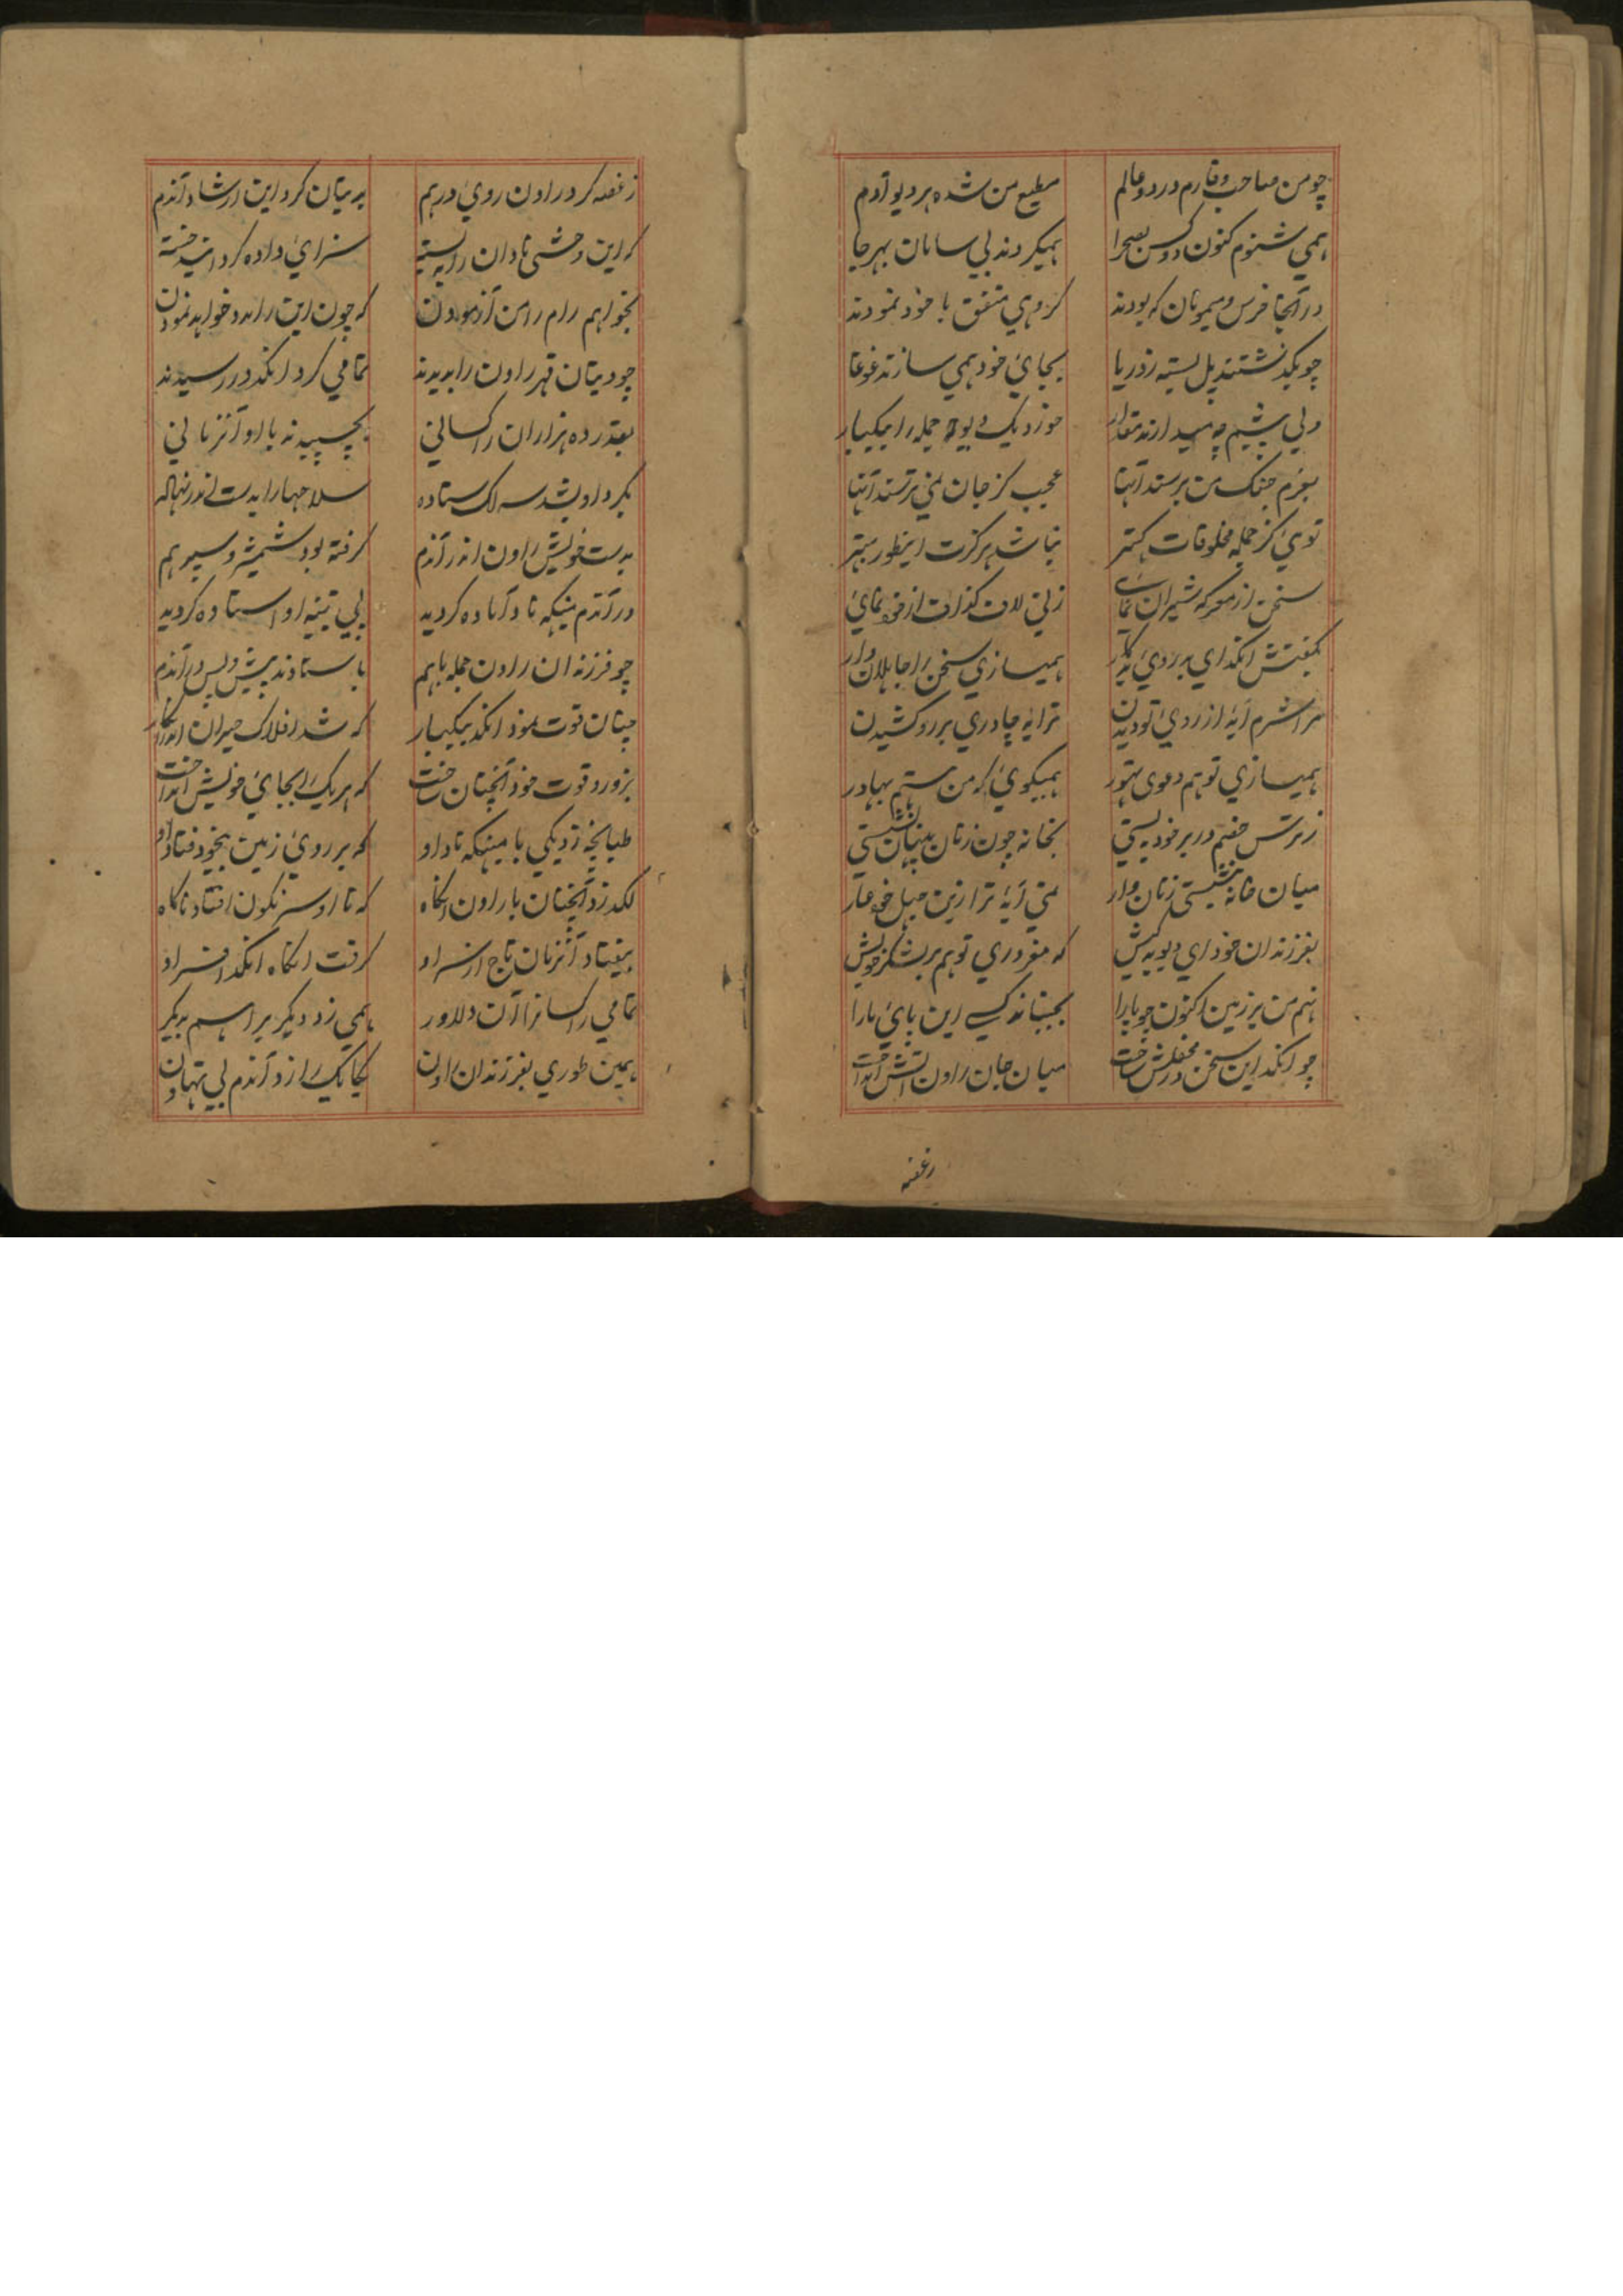 چو من صاحب وقارم در دو عالم مطیع من شده هر دیو آدم
همي شنوم کنون دو کس بصحرا همیکردند بي سامان بهر جا
در آنجا خرس و میمونان که بودند کروهي متفق با خود نمودند
چو بکذشتند پل بسته ز دریا بجائ خود همي سازند غوغا
ولي پیشم چه میدارند مقدار خورد یک دیو جمله را بیکبار
بعزم جنک من برستند آنها عجب کز جان نمي ترستند آنها
توئ کز جمله مخلوقات کمتر نباشد هرکزت اینطور بهتر
سخن از معرکه شیران نمائ زني لاف کذاف از خود نمائ
بکفتش انکد اي بد روئ بدکار همیسازي سخن را جاهلان وار
مرا شرم آید از روئ تو دیدن ترا به چادري بر رو کشیدن
همیسازي تو هم دعوی تهور همیکوئ که من هستم بهادر
ز ترس خصم در بر خود ببستي بخانه چون زنان پنهان نشستي
میان خانه بنشستي زنان وار نمي آید ترا زین جهل خود عار
بفرزندان خود اي دیو بدکیش که مغروري تو هم بر لشکر خویش
نهم من بر زمین اکنون چو پا را بجنباند کسے این پائ ما را
چو انکد این سخن در محفلش ساخت میان جان راون آتش انداخت
زغصه
ز غصه کرد راون روي درهم بدیتان کرد این ارشاد آندم
که این وحشی نادان را به بسته سزائ داده کردانید خسته
بخواهم رام را من آزمودن که چون این را مدد خواهد نمودن
چو دیتان قهر راون را بدیدند تمامي کرد انکد در رسیدند
بقدر ده هزاران راکساني بچسپیدند با او آنزماني
بکرد او بشد سه لک ستاده سلاحها را بدست اندر نهاده
بدست خویش راون اندر آندم کرفته بود شمشیر و سپر هم
در آندم میکهه ناد آماده کردید پي تنبیه او استاده کردید
چو فرزندان راون جمله باهم باستادند پیش و پس در آندم
چنان قوت نمود انکد بیکبار که شد افلاک حیران اندر آنکار
بزور و قوت خود آنچنان ساخت که هر یک را بجائ خویش انداخت
طپانچه زد یکي با میکهه ناد او که بر روئ زمین بیخود فتاد او
لکد زد آنچنان با راون آنکاه که تا او سرنکون افتاد ناکاه
بیفتاد آنزمان تاج از سر او کرفت آنکاه انکد افسر او
تمامي راکسانرا آن دلاور همي زد دیکر بر اسم دیکر
همین طوري بفرزندان راون یکایک را زد آندم بي تهاون